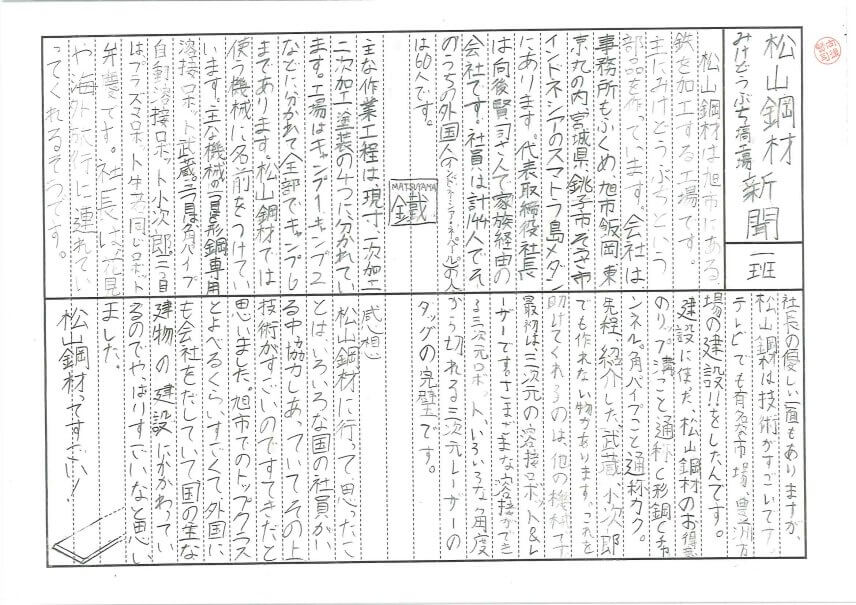 松山鋼材新聞
みけどうぶち
一班
松山鋼材は旭市にある
鉄を加工する工場です。
主にみけどうぶちという
部品を作っています。会社は
事務所もふくめ旭市飯岡、東
京丸の内、宮城県、銚子市、そうさ市
インドネシアのスマトラ島メダン
にあります。代表取締役社長
は向後賢司さんで家族経由の
会社です。社員は計144人でそ
のうちの外国人
は60人です。
MATSUYAMA
鐵
主な作業工程は、現寸一次加工
二次加工、塗装の4つに分かれてい
ます。工場はキャンプ1キャンプ2
などに分かれて全部でキャンプ6
まであります。松山鋼材では
使う機械に名前をつけてい
います。主な機械の一つ目は形鋼専用
溶接ロボット武蔵。二つ目は角パイプ
自動溶接ロボット小次郎。三つ目
はプラズマロボット牛若、同じロボット
弁慶です。社長は、花見
や海外旅行に連れてい
ってくれるそうです。
社長の優しい一面もありますが、
松山鋼材は技術がすごいです。
テレビでも有名な市場、豊洲市
場の建設!!をしたんです。
建設に使った、松山鋼材のお得意
のリップ溝こと通称C形鋼Cチャ
ンネル。角パイプこと通称カク。
先程紹介した、武蔵、小次郎
でも作れない物があります。これを
助けてくれるのは、他の機械です
最初は、三次元の溶接ロボット&レ
ーザーです。さまざまな溶接ができ
る三次元ロボット、いろいろな角度
から切れる三次元レーザーの
タッグの完璧です。
感想
松山鋼材に行って思ったこ
とはいろいろな国の社員がい
る中協力しあっていてその上
技術がすごいのですてきだと
思いました。旭市でのトップクラス
とよべるくらいすごくて外国に
も会社をだしていて国の主な
建物の建設にかかわってい
るのでやはりすごいなと思い
ました。
松山鋼材ってすごい!